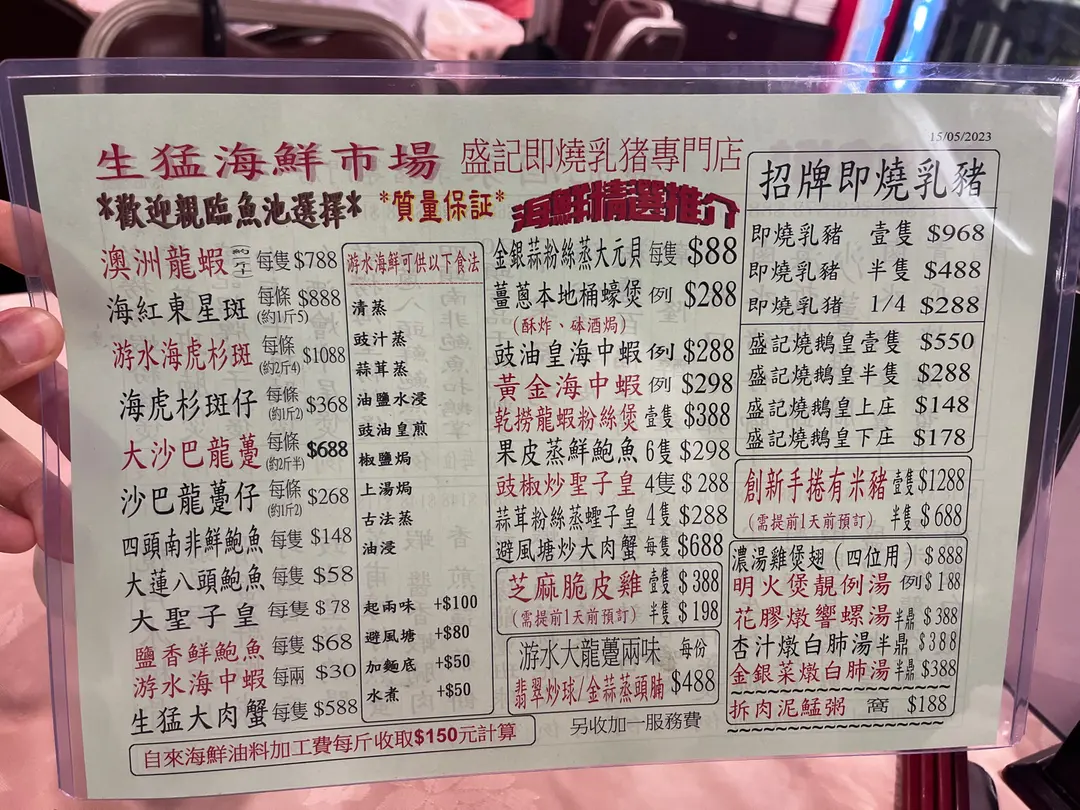 15/05/2023
生猛海鮮市場 盛記即燒乳猪專門店
*歡迎親臨魚池選擇* *質量保証*
澳洲龍蝦 每隻 $788
海紅東星斑 每條 (約1斤5) $888
游水海虎杉斑 每條 (約2斤4) $1088
海虎杉斑仔 每條 (約1斤2) $368
大沙巴龍躉 每條 (約2斤半) $688
沙巴龍躉仔 每條 (約1斤2) $268
四頭南非鮮鮑魚 每隻 $148
大蓮八頭鮑魚 每隻 $58
大聖子皇 每隻 $78
鹽香鮮鮑魚 每隻 $68
游水海中蝦 每兩 $30
生猛大肉蟹 每隻 $588
自來海鮮油料加工費每斤收取$150元計算
游水海鮮可供以下食法
清蒸
豉汁蒸
蒜茸蒸
油鹽水浸
豉油皇煎
椒鹽焗
上湯焗
古法蒸
油浸
起兩味 +$100
避風塘 +$80
加麵底 +$50
水煮 +$50
海鮮精選推介
金銀蒜粉絲蒸大元貝 每隻 $88
薑蔥本地桶蠔煲 例 $288
(酥炸、砵酒焗)
豉油皇海中蝦 例 $288
黃金海中蝦 例 $298
乾撈龍蝦粉絲煲 壹隻 $388
果皮蒸鮮鮑魚 6隻 $298
豉椒炒聖子皇 4隻 $288
蒜茸粉絲蒸蟶子皇 4隻 $288
避風塘炒大肉蟹 每隻 $688
芝麻脆皮雞 壹隻 $388
(需提前1天前預訂) 半隻 $198
游水大龍躉兩味 每份
翡翠炒球/金蒜蒸頭腩 $488
另收加一服務費
招牌即燒乳豬
即燒乳豬 壹隻 $968
即燒乳豬 半隻 $488
即燒乳豬 1/4 $288
盛記燒鵝皇壹隻 $550
盛記燒鵝皇半隻 $288
盛記燒鵝皇上庄 $148
盛記燒鵝皇下庄 $178
創新手捲有米豬 壹隻 $1288
(需提前1天前預訂) 半隻 $688
濃湯雞煲翅 (四位用) $888
明火煲靚例湯 例 $188
花膠燉響螺湯 半鼎 $388
杏汁燉白肺湯 半鼎 $388
金銀菜燉白肺湯 半鼎 $388
拆肉泥鯭粥 窩 $188